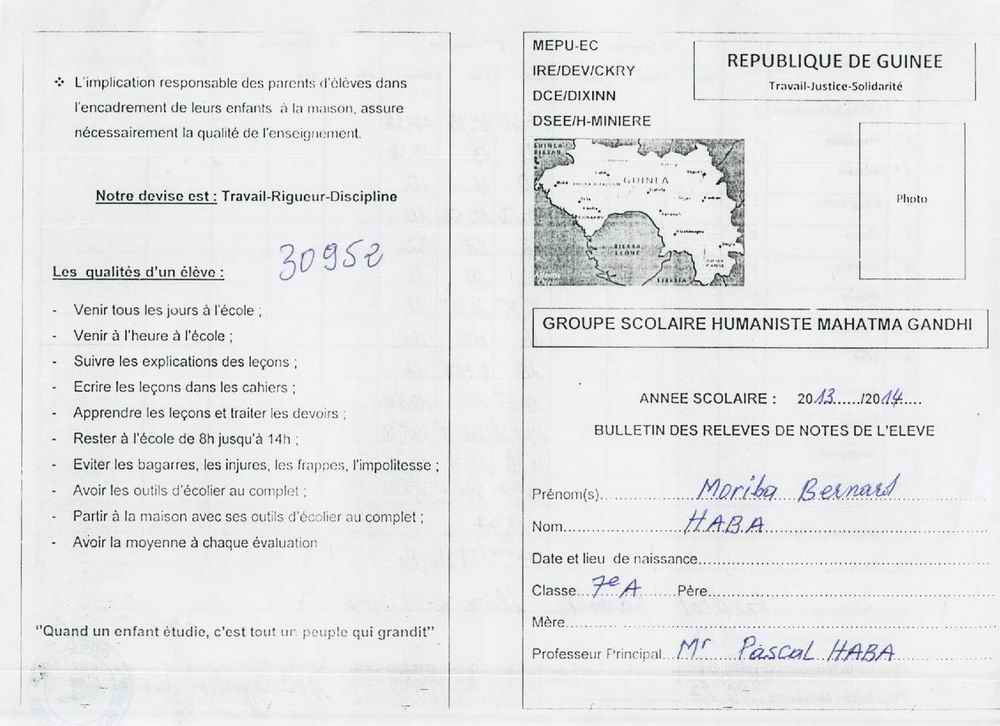 ❖ L'implication responsable des parents d'élèves dans
l'encadrement de leurs enfants à la maison, assure
nécessairement la qualité de l'enseignement.
Notre devise est : Travail-Rigueur-Discipline
30952
Les qualités d'un élève :
- Venir tous les jours à l'école ;
- Venir à l'heure à l'école ;
- Suivre les explications des leçons ;
- Ecrire les leçons dans les cahiers ;
- Apprendre les leçons et traiter les devoirs ;
- Rester à l'école de 8h jusqu'à 14h ;
- Eviter les bagarres, les injures, les frappes, l'impolitesse ;
- Avoir les outils d'écolier au complet ;
- Partir à la maison avec ses outils d'écolier au complet ;
- Avoir la moyenne à chaque évaluation
"Quand un enfant étudie, c'est tout un peuple qui grandit"
MEPU-EC
IRE/DEV/CKRY
DCE/DIXINN
DSEE/H-MINIERE
REPUBLIQUE DE GUINEE
Travail-Justice-Solidarité
Photo
GUINEA
SIERRA
LEONE
LIBERIA
GROUPE SCOLAIRE HUMANISTE MAHATMA GANDHI
ANNEE SCOLAIRE : 2013....../2014....
BULLETIN DES RELEVES DE NOTES DE L'ELEVE
Prénom(s)................ Moriba Bernard
Nom................ HABA
Date et lieu de naissance................
Classe... 7e A ......Père................
Mère................
Professeur Principal... Mr Pascal HABA